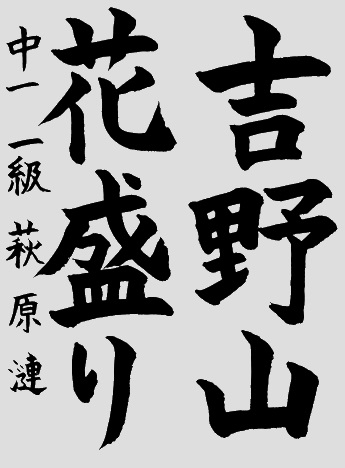 吉野山
花盛り
中一 一級 萩原漣